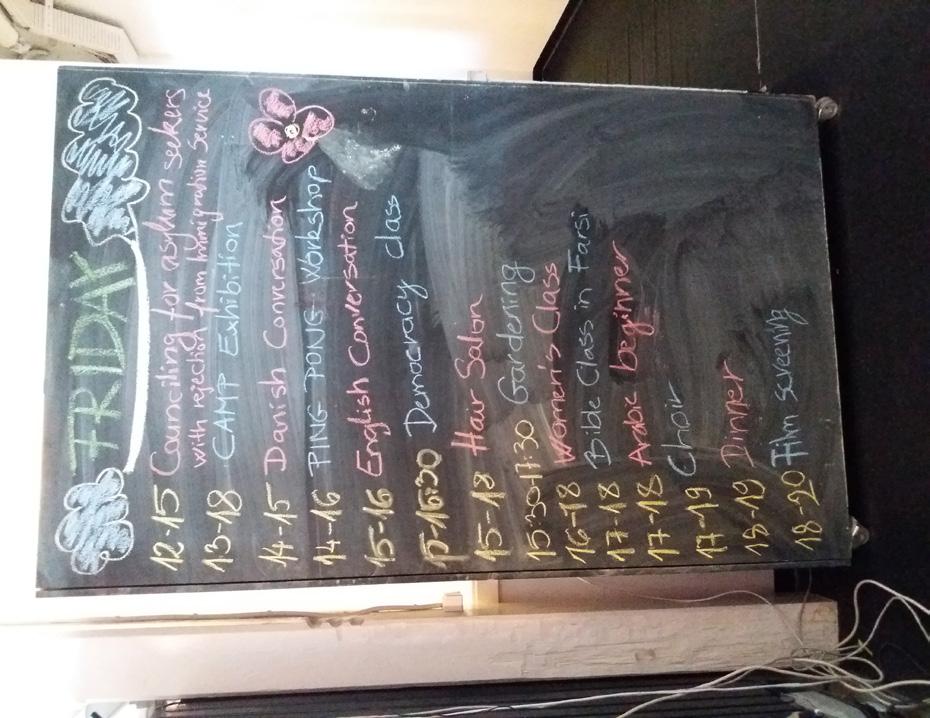 FRIDAY
12-15 Counciling for asylum seekers
with rejection from Immigration Service
13-18 CAMP Exhibition
14-15 Danish Conversation
14-16 PING PONG Workshop
15-16 English Conversation
15-16:30 Democracy class
15-18 Hair Salon
15:30-17:30 Gardening
16-18 Women's Class
17-18 Bible Class in Farsi
17-18 Arabic beginner
17-19 Choir
18-19 Dinner
18-20 Film screening